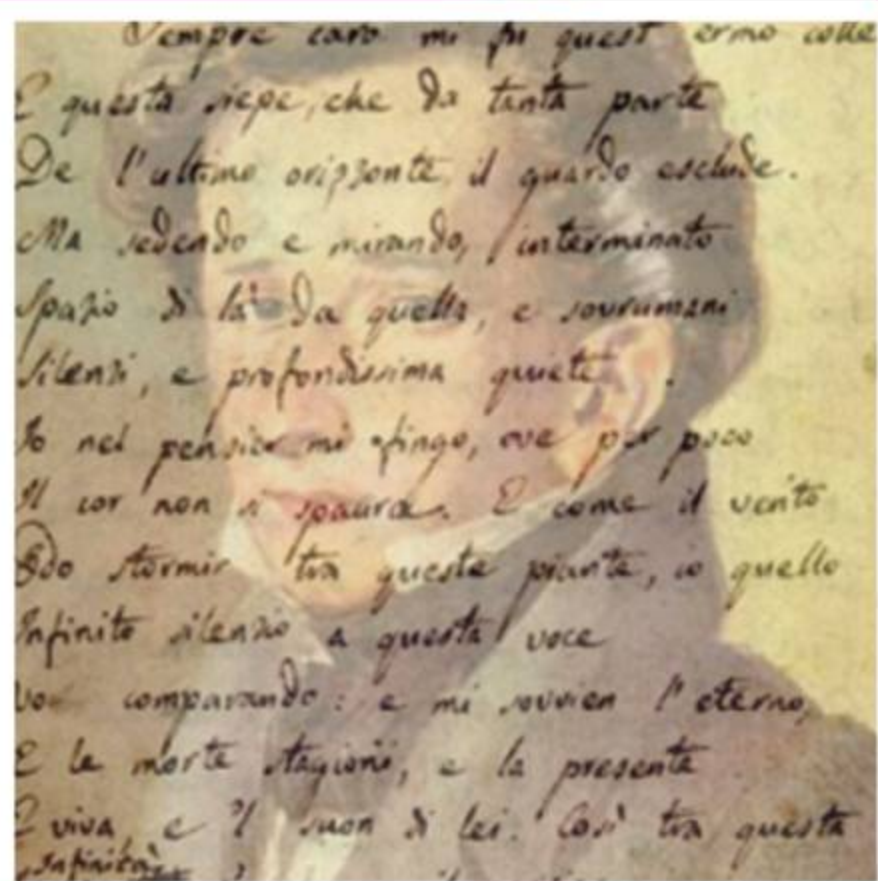 Sempre caro mi fu quest' ermo colle
E questa siepe, che da tanta parte
De l'ultimo orizzonte il guardo esclude.
Ma sedendo e mirando, interminato
Spazio di là da quella, e sovrumani
Silenzi, e profondissima quiete
Io nel pensier mi fingo, ove per poco
Il cor non si spaura. E come il vento
Odo stormir tra queste piante, io quello
Infinito silenzio a questa voce
Vo comparando: e mi sovvien l'eterno,
E le morte stagioni, e la presente
E viva, e 'l suon di lei. Così tra questa
Infinità